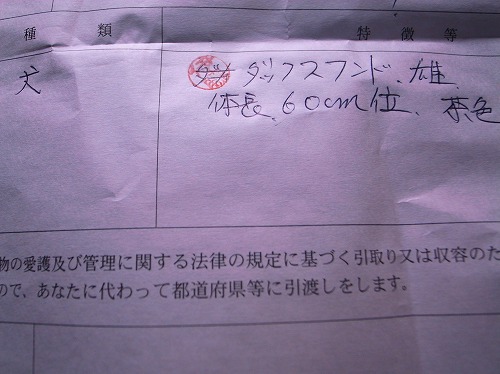 種類 特徴等
犬 ダックスフンド、雄、
体長、60cm位、茶色
物の愛護及び管理に関する法律の規定に基づく引取り又は収容のた
ので、あなたに代わって都道府県等に引渡しをします。